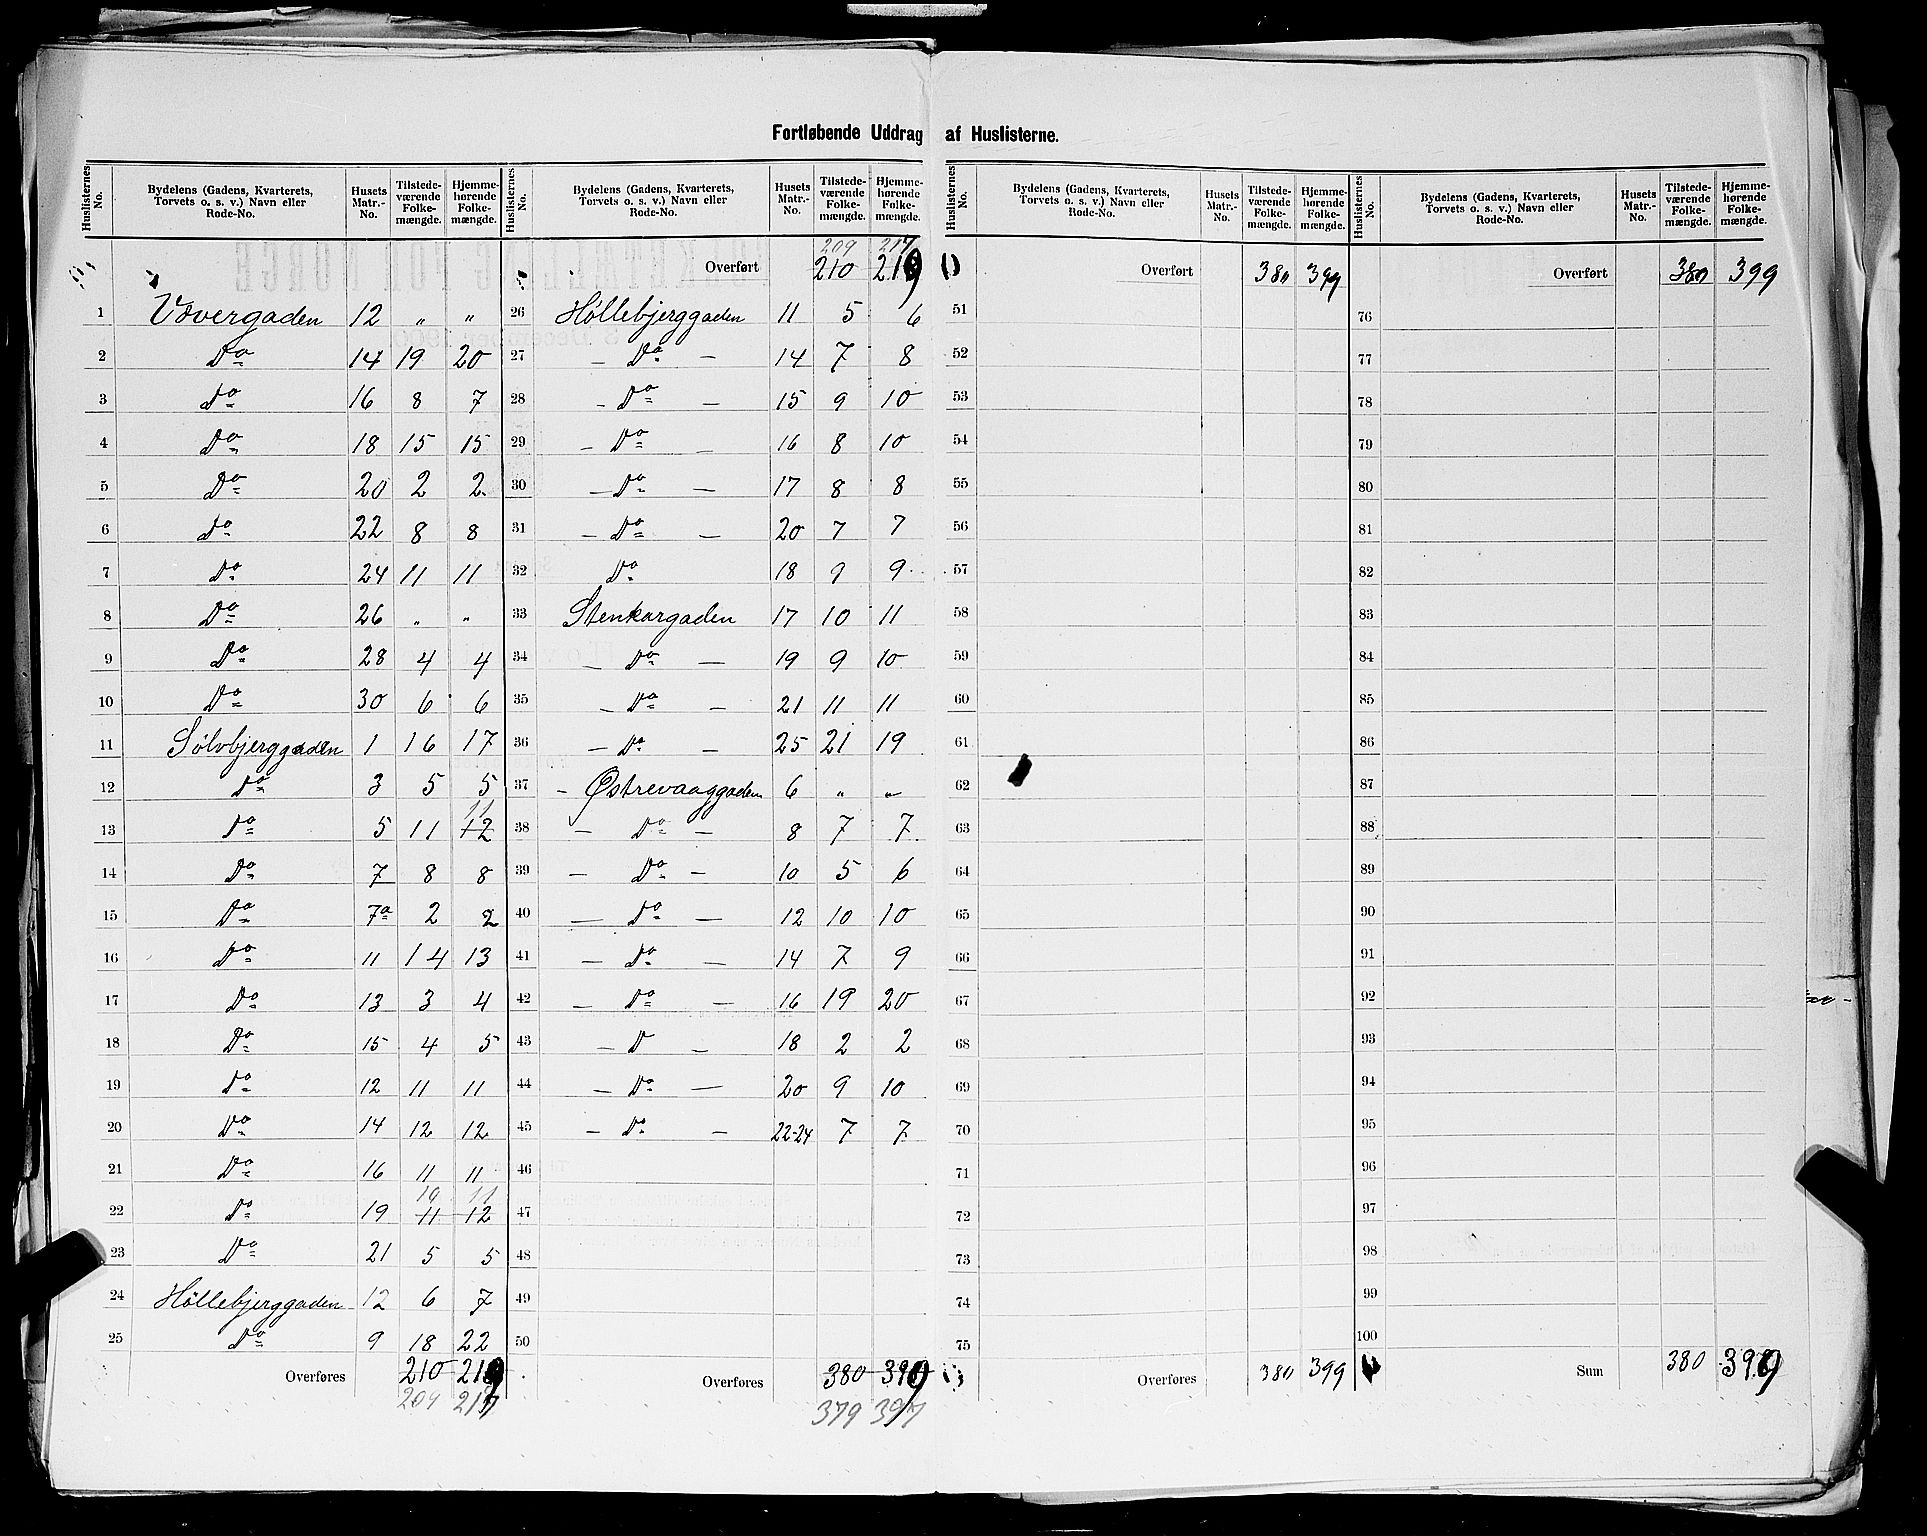 Fortløbende Uddrag af Huslisterne.
Huslisternes No. | Bydelens (Gadens, Kvarterets, Torvets o. s. v.) Navn eller Rode-No. | Husets Matr.-No. | Tilstedeværende Folkemængde. | Hjemmehørende Folkemængde.
1 Vævergaden 12 " "
2 Do 14 19 20
3 Do 16 8 7
4 Do 18 15 15
5 Do 20 2 2
6 Do 22 8 8
7 Do 24 11 11
8 Do 26 " "
9 Do 28 4 4
10 Do 30 6 6
11 Sølvbjerggaden 1 16 17
12 Do 3 5 5
13 Do 5 11 12 11
14 Do 7 8 8
15 Do 7a 2 2
16 Do 11 14 13
17 Do 13 3 4
18 Do 15 4 5
19 Do 12 11 11
20 Do 14 12 12
21 Do 16 11 11
22 Do 19 11 10 12 11
23 Do 21 5 5
24 Høllebjerggaden 12 6 7
25 Do 9 18 22
Overføres 210 219
209 217
Huslisternes No. | Bydelens (Gadens, Kvarterets, Torvets o. s. v.) Navn eller Rode-No. | Husets Matr.-No. | Tilstedeværende Folkemængde. | Hjemmehørende Folkemængde.
209 217
Overført 210 219
26 Høllebjerggaden 11 5 6
27 - Do - 14 7 8
28 - Do - 15 9 10
29 - Do - 16 8 10
30 - Do - 17 8 8
31 - Do - 20 7 7
32 Do 18 9 9
33 Stenkargaden 17 10 11
34 - Do - 19 9 10
35 - Do - 21 11 11
36 - Do - 25 21 19
37 - Østrevaaggaden 6 " "
38 - Do - 8 7 7
39 - Do - 10 5 6
40 - Do - 12 10 10
41 - Do - 14 7 9
42 - Do - 16 19 20
43 - D - 18 2 2
44 - Do - 20 9 10
45 - Do - 22-24 7 7
46
47
48
49
50
Overføres 380 399
379 397
Huslisternes No. | Bydelens (Gadens, Kvarterets, Torvets o. s. v.) Navn eller Rode-No. | Husets Matr.-No. | Tilstedeværende Folkemængde. | Hjemmehørende Folkemængde.
Overført 380 399
51
52
53
54
55
56
57
58
59
60
61
62
63
64
65
66
67
68
69
70
71
72
73
74
75
Overføres 380 399
Huslisternes No. | Bydelens (Gadens, Kvarterets, Torvets o. s. v.) Navn eller Rode-No. | Husets Matr.-No. | Tilstedeværende Folkemængde. | Hjemmehørende Folkemængde.
Overført 380 399
76
77
78
79
80
81
82
83
84
85
86
87
88
89
90
91
92
93
94
95
96
97
98
99
100
Sum 380 399